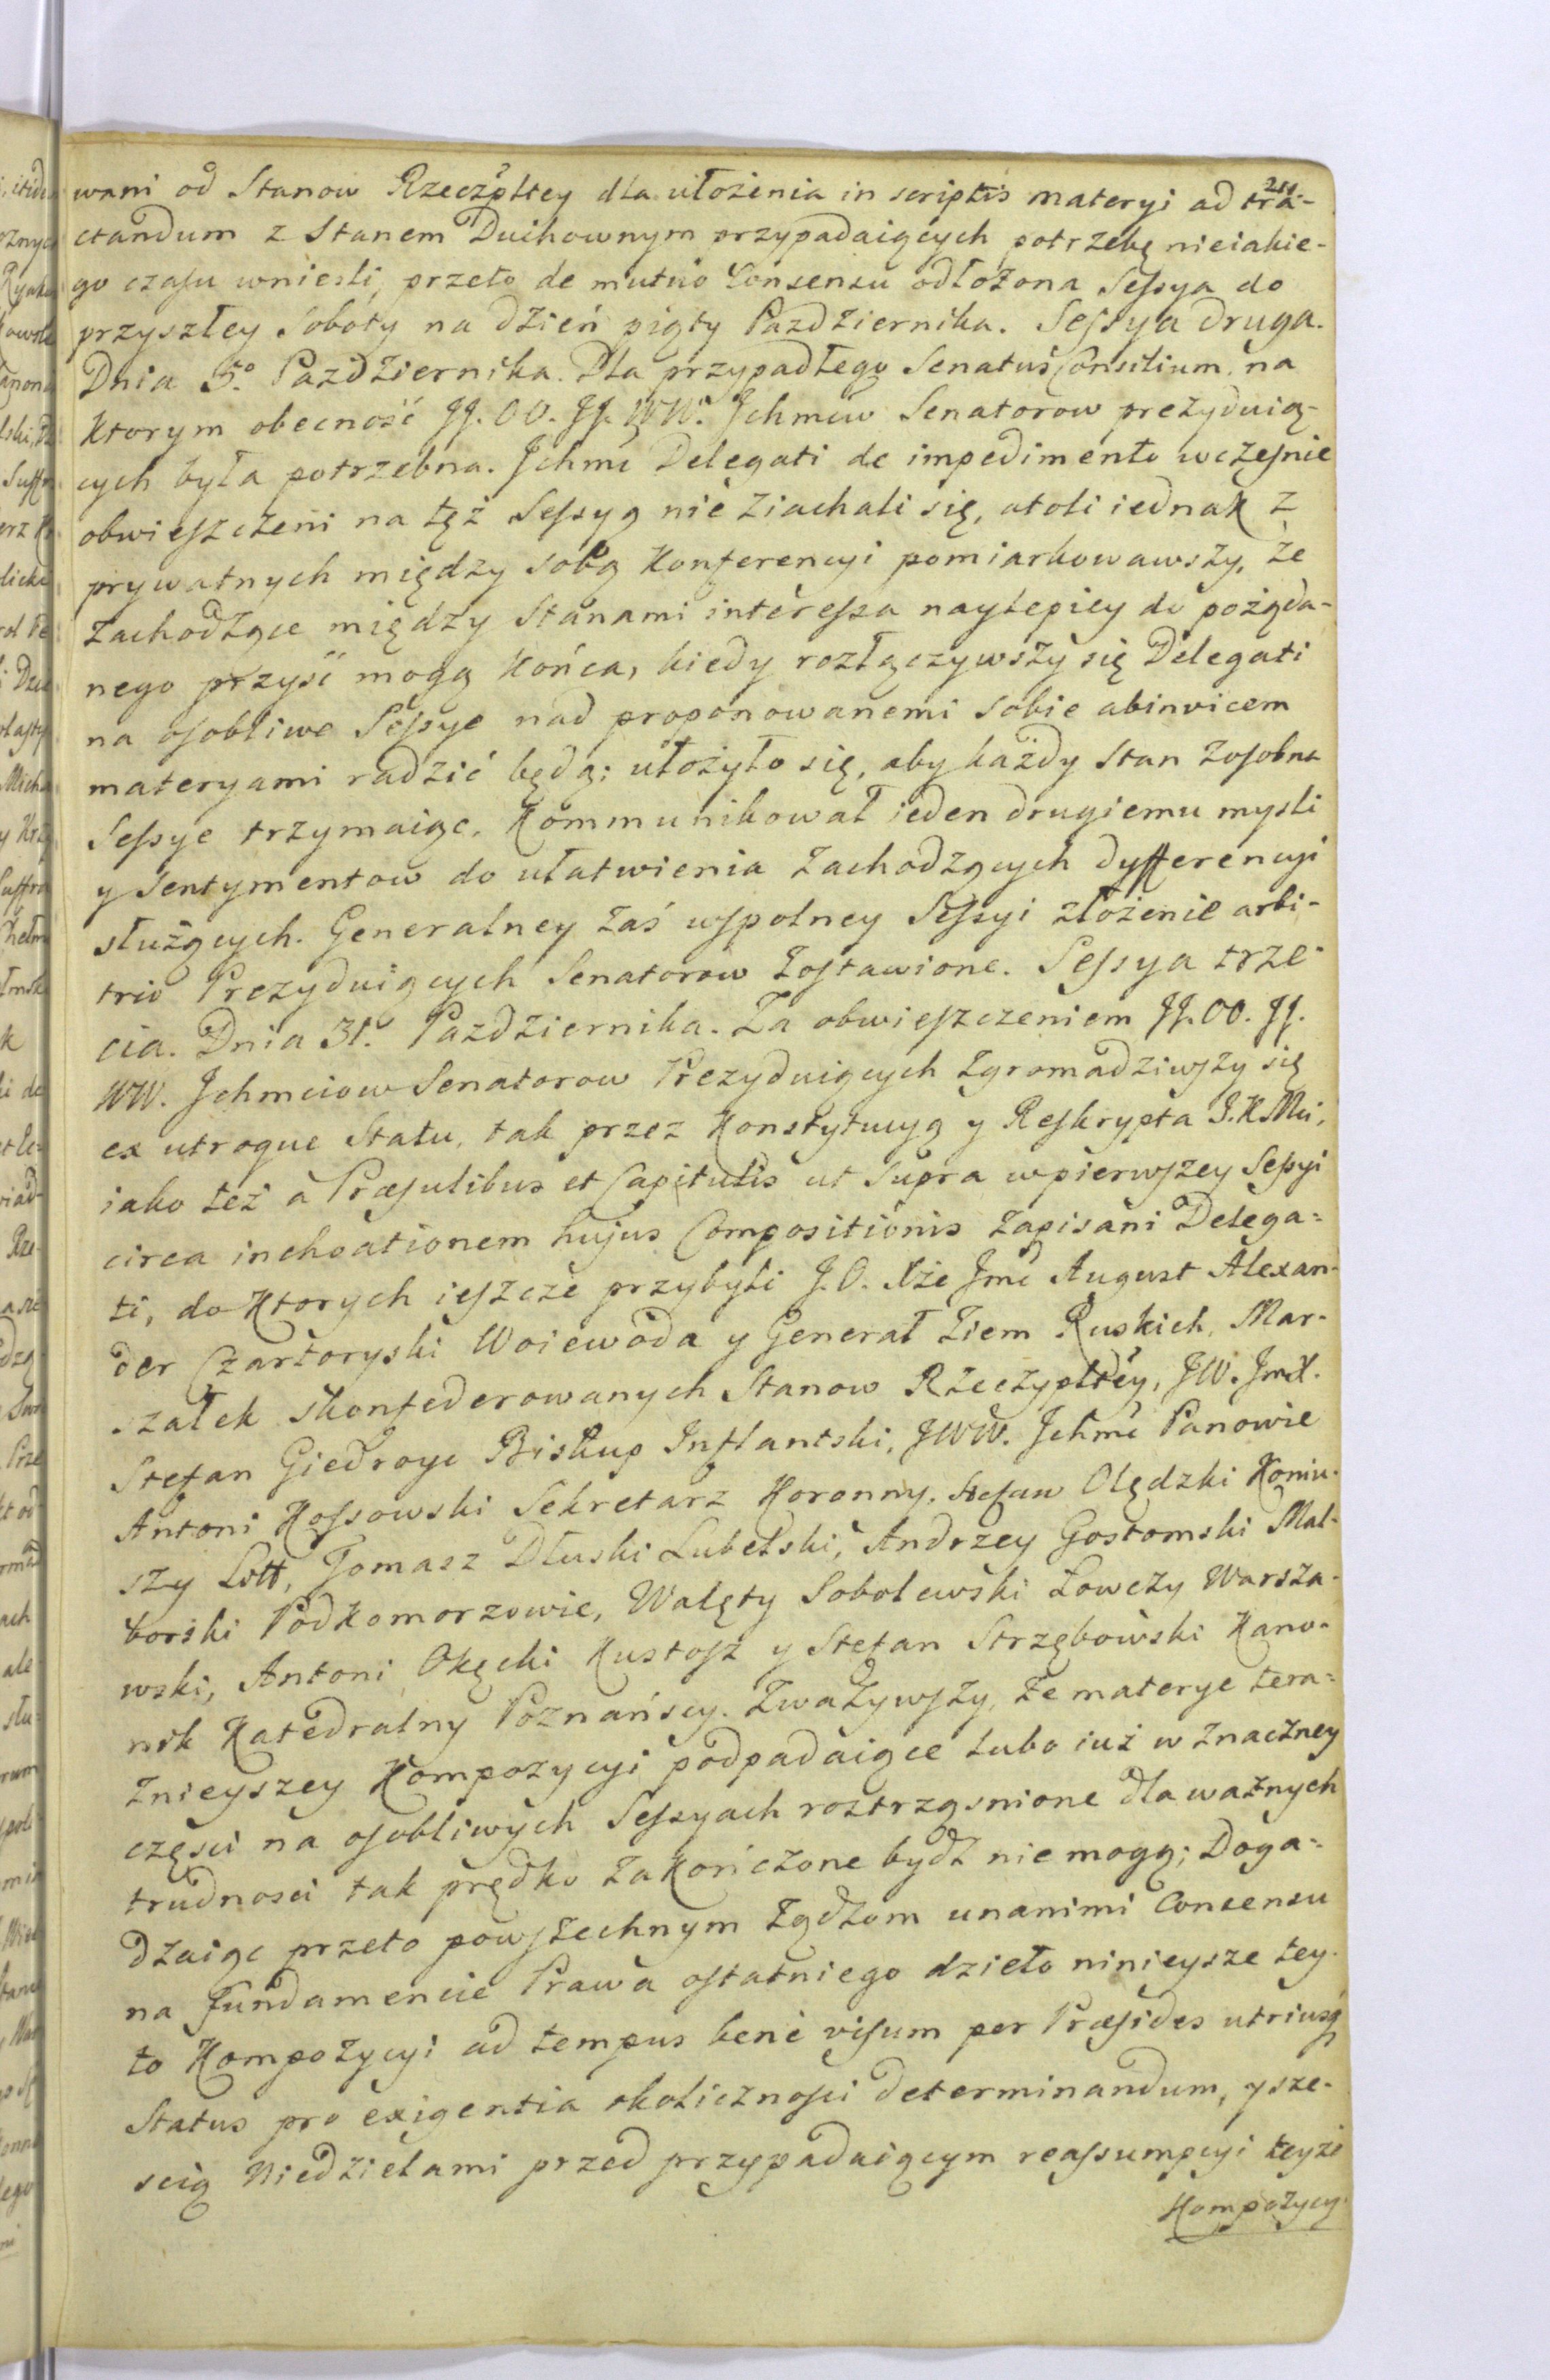 211.
wani od Stanow Rzeczpltey dla ułożenia in scriptis materyi ad tra-
ctandum z Stanem Duchownym przypadaiących potrzebę nieiakie-
go czasu wniesli, przeto de mutuo Consensu odłożona Sessya do
przyszłey Soboty na dzień piąty Pazdziernika. Sessya druga.
Dnia 5.º Pazdziernika. Dla przypadłego Senatus Consilium, na
Ktorym obecność JJ. OO. JJ. WW. Jchmciw Senatorow prezyduią-
cych była potrzebna. Jchmć Delegati de impedimento wcześnie
obwieszczeni na tęż Sessyą nie ziachali się, atoli iednak z
prywatnych między sobą Konferencyi pomiarkowawszy, że
zachodzące między Stanami interessa naylepiey do pożąda-
nego przyść mogą Końca, kiedy rozłączywszy się Delegati
na osobliwe Sessye nad proponowanemi sobie abinvicem
materyami radzić będą; ułożyło się, aby każdy Stan zosobna
Sessye trzymaiąc, Kommunikował ieden drugiemu mysli
y Sentymentow do ułatwienia zachodzących dyfferencyi
służących. Generalney zaś wspolney Sessyi złożenie arbi-
trio Prezyduiących Senatorow zostawione. Sessya trze-
cia. Dnia 31.º Pazdziernika. Za obwieszczeniem JJ. OO. JJ.
WW. Jchmciow Senatorow Prezyduiących zgromadziwszy się
ex utroque Statu, tak przez Konstytucyą y Reskrypta J. K. Mci,
iako też à Præsulibus et Capitulis ut supra w pierwszey Sessyi
circa inchoationem hujus Compositionis zapisani Delega-
ti, do Ktorych ieszcze przybyli J. O. Xże Jmć August Alexan-
der Czartoryski Woiewoda y Generał Ziem Ruskich, Mar-
szałek skonfederowanych Stanow Rzeczypltey, JW. JmX.
Stefan Giedroyc Biskup Inflantski, JWW. Jchmć Panowie
Antoni Kossowski Sekretarz Koronny, Stefan Olędzki Koniu-
szy Litt, Tomasz Dłuski Lubelski, Andrzey Gostomski Mal-
borski Podkomorzowie, Walęty Sobolewski Łowczy Warsza-
wski, Antoni Okęcki Kustosz y Stefan Strzębowski Kano-
nik Katedralny Poznańscy. Zważywszy, że materye tera-
znieyszey Kompozycyi podpadaiące lubo iuż w znaczney
częsci na osobliwych Sessyach roztrząsnione dla ważnych
trudnosci tak prędko zakończone bydź nie mogą; Doga-
dzaiąc przeto powszechnym żądzom unanimi Consensu
na fundamencie Prawa ostatniego dzieło ninieysze tey-
to Kompozycyi ad tempus bene visum per Præsides utriusq
Status pro exigentia okolicznosci determinandum, y sze-
scią Niedzielami przed przypadaiącym reassumpcyi teyże
Kompozycy